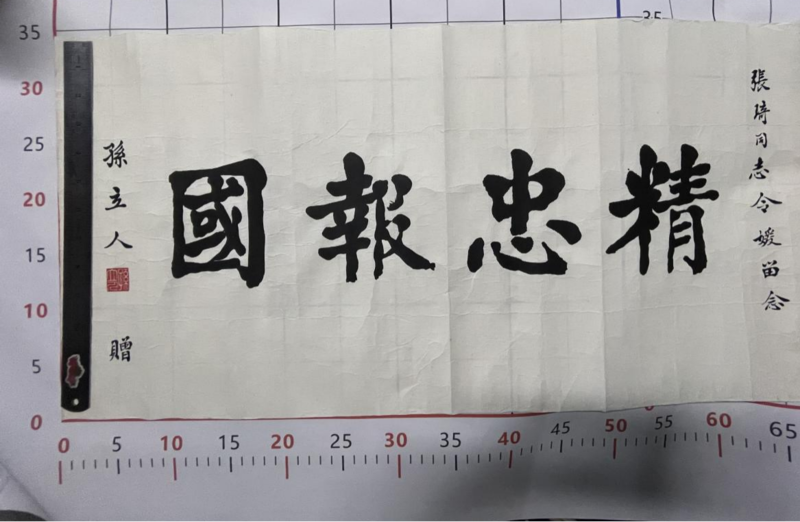 張琦同志令媛留念
精忠報國
孫立人
贈
35
35
30
25
20
15
10
5
0
0 5 10 15 20 25 30 35 40 45 50 55 60 65